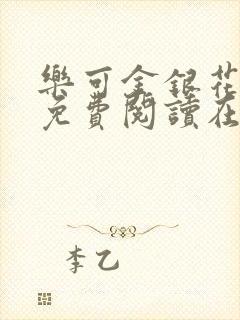 樂可金銀花
免費閱讀在
李乙